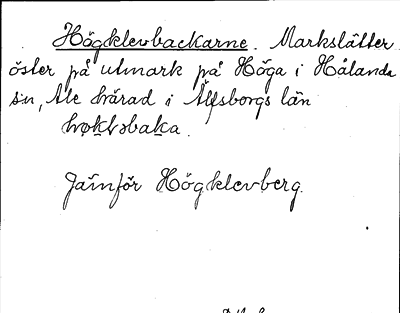 Högklevbackarne. Markslätter
öster på utmark på Höga i Hålanda
sn, Ale härad i Älfsborgs län
Jämför Högklevberg.